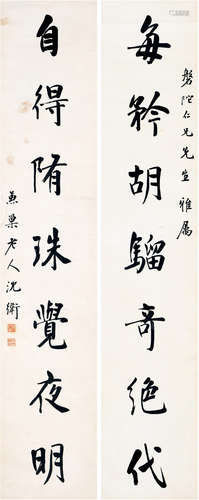 磐陀仁兄先生雅屬
每矜胡騮奇絕代
自得隋珠覺夜明
魚巢老人沈衛